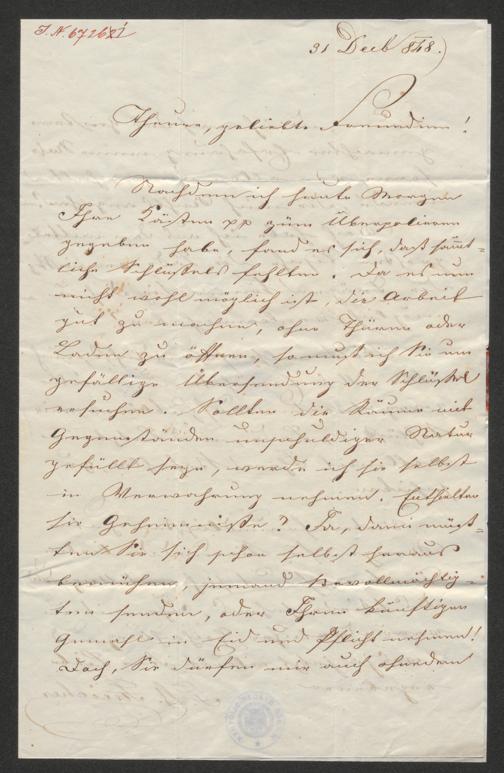 I.N. 67262
31 Decb 1848.
Theure, geliebte Freundinn!
Nachdem ich heute Morgen
Ihre Kästen pp zum Überpolieren
gegeben habe, fand es sich, daß sämt-
liche Schlüssels fehlten. Da es nun
nicht wohl möglich ist, die Arbeit
gut zu machen, ohne Thüren oder
Laden zu öffnen, so muß ich Sie um
gefällige Übersendung der Schlüssel
ersuchen. Sollten die Räume mit
Gegenständen unschuldiger Natur
gefüllt seyn, werde ich sie selbst
in Verwahrung nehmen. Enthalten
sie Geheimnisse? Ja, dann müß-
ten Sie sich schon selbst heraus
bemühen, jemand Bevollmächtig-
ten senden, oder Ihren künftigen
Gemahl in Eid und Pflicht nehmen!
Doch, Sie dürfen mir auch ohnedem